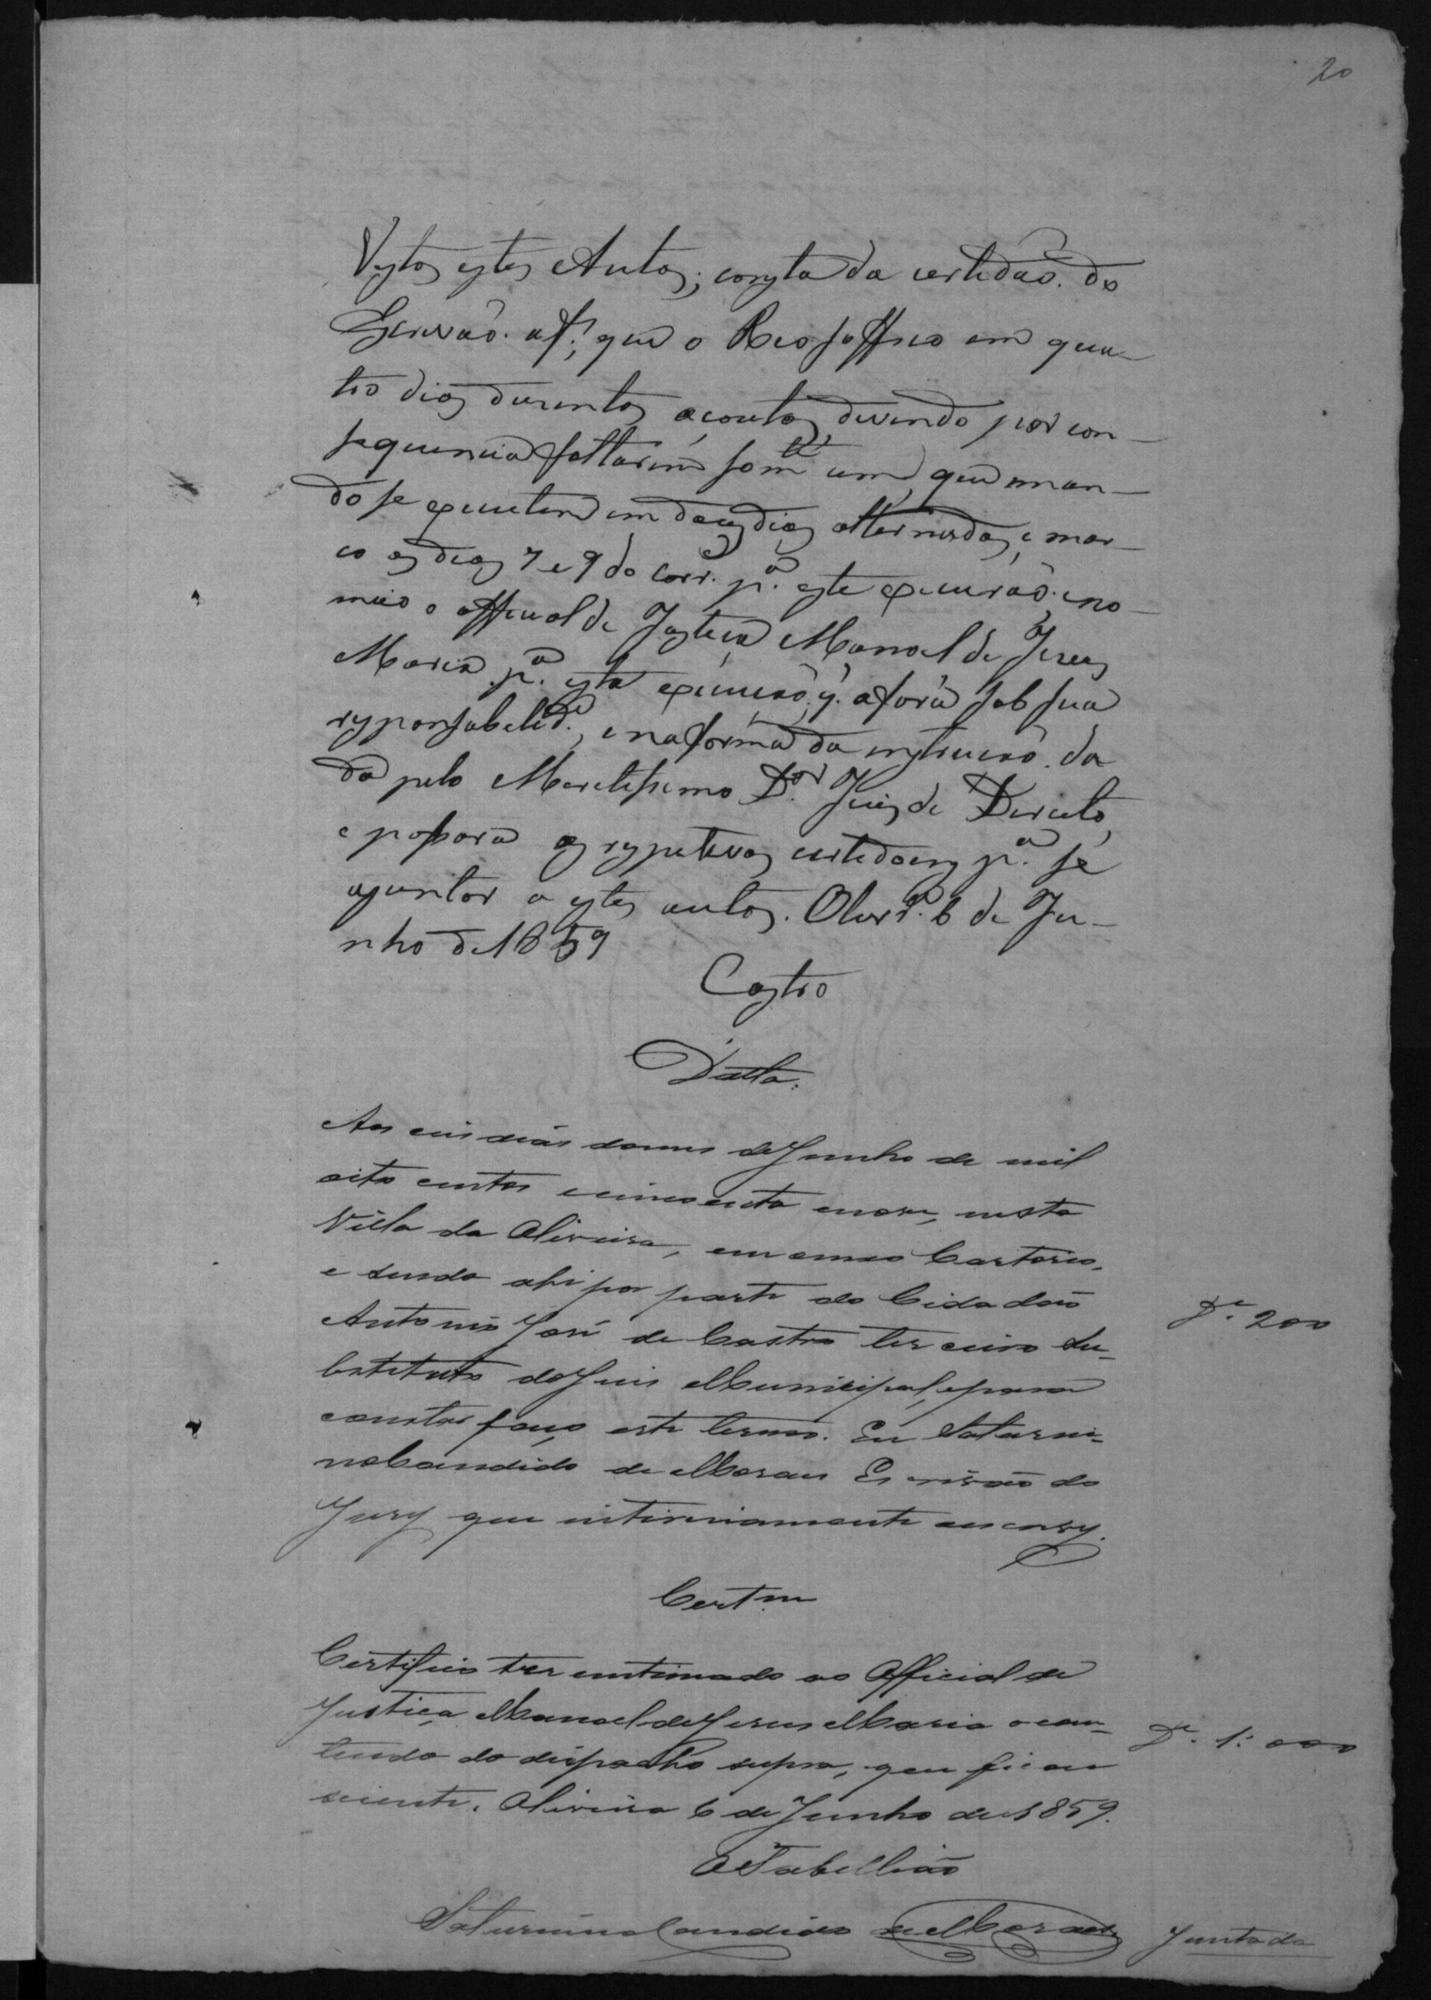 20
Vistos estes Autos; consta da certidaõ do
Escrivaõ af. que o Reo soffreo em qua-
tro dias duzentos açoutes, devendo por con-
sequencia faltarem som.te cem, que man-
do se executem em dous dias alternados, e mar-
co os dias 7 e 9 do corr. p.a esta execuçaõ, e no-
meio o Official de Justiça Manoel de Jesus
Maria p.a esta execuçaõ, q. a fará sob sua
responsabelid.e, e na forma da instrucaõ da
da pelo Meretissimo D.or Juis de Dereito,
e passará as respetivas certidoens p.a se
ajuntar a estes autos. Olivr.a 6 de Ju-
nho de 1859
Castro
Datta.
Aos seis dias domes de Junho de mil
oito centos ecincoenta enove, nesta
Villa da Oliveira, em omeo Cartorio,
e sendo ahi por parte do Cidadaõ
Antonio José de Castro terceiro Su-
bstituto do Juis Municipal, epara
constar faço este termo. Eu Saturni-
no Candido de Moraes Escrivaõ do
Jury que intirinamente escrevy.
D.e 200
Cert.m
Certifico ter intimado ao Official de
Justiça Manoel de Jesus Maria o con-
teudo do despacho supra, que ficou
sciente. Oliveira 6 de Junho de 1859.
D.e 1:000
O Tabellião
Saturnino Candido de Moraes
Juntada